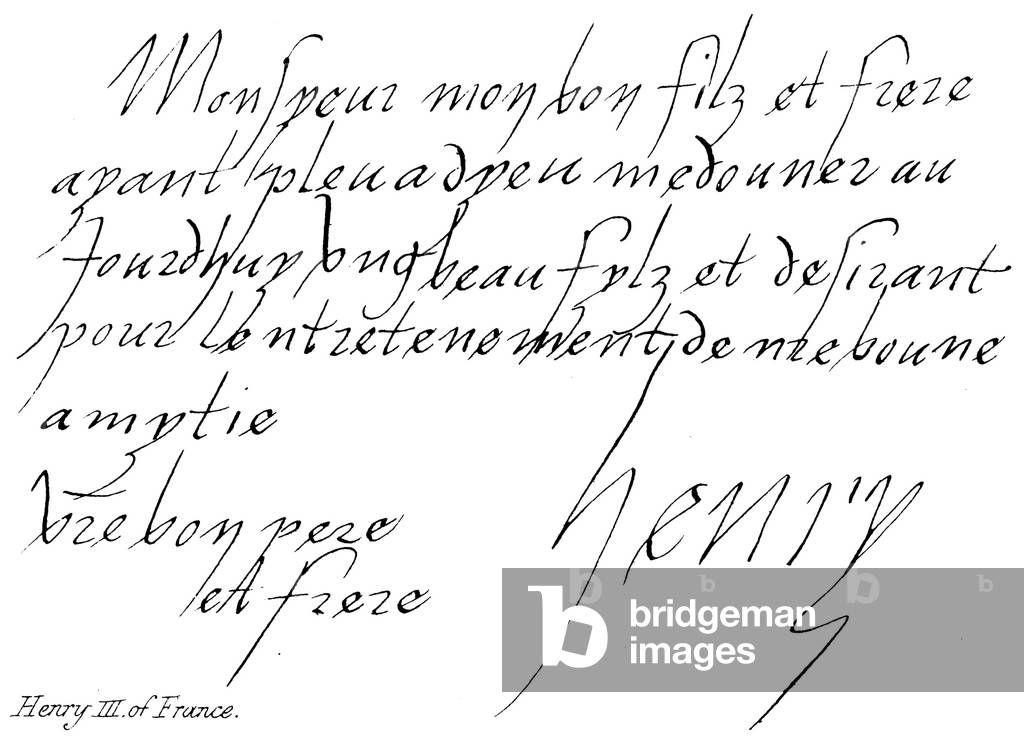 Monsyeur mon bon filz et frere
ayant pleu a dyeu me douner au
Jourdhuy ung beau fylz et desirant
pour lentretenement de nre boune
amytie
vre bon pere
et frere
henry
bridgeman
images
Henry III. of France.